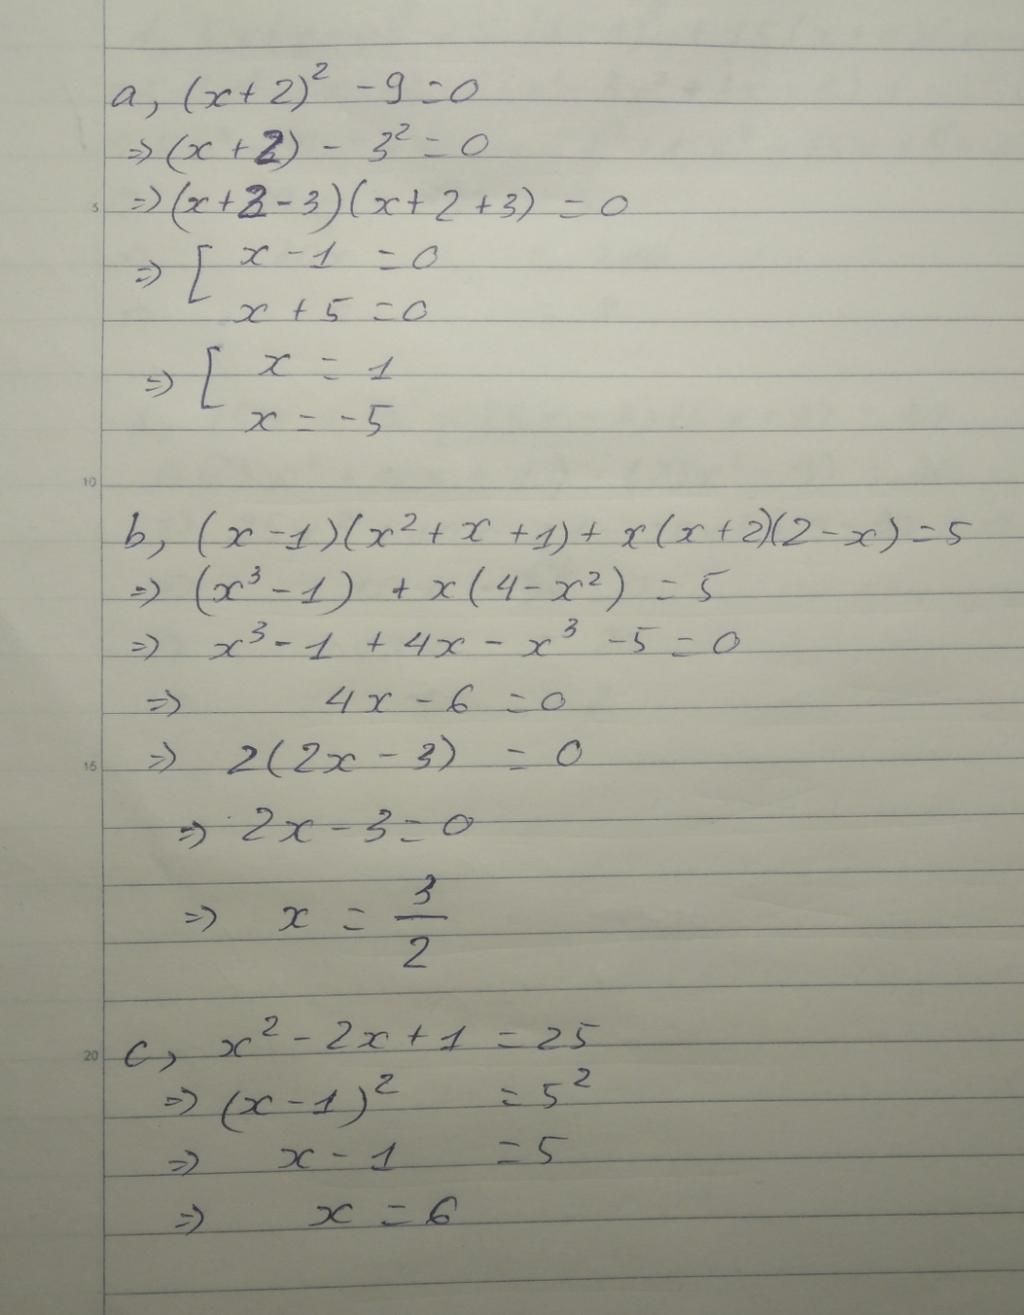 a, (x+2)² - 9 = 0
=> (x + 2) - 3² = 0
=> (x+2-3)(x+2+3) = 0
5
=> [ x - 1 = 0
x + 5 = 0
=> [ x = 1
x = -5
10
b, (x-1)(x²+x+1) + x(x+2)(2-x) = 5
=> (x³-1) + x(4-x²) = 5
=> x³ - 1 + 4x - x³ - 5 = 0
=> 4x - 6 = 0
=> 2(2x - 3) = 0
15
=> 2x - 3 = 0
=> x = 3/2
c, x² - 2x + 1 = 25
20
=> (x-1)² = 5²
=> x - 1 = 5
=> x = 6